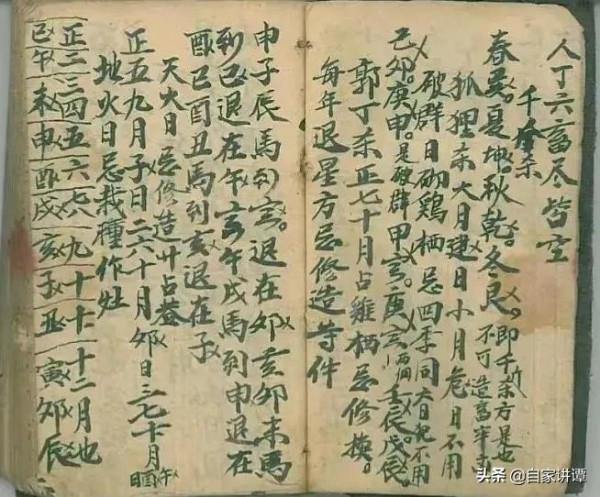 人丁六畜尽皆空
千斤杀
春巽。夏坤。秋乾。冬艮。即千斤杀方是也
不可造畜牢
狐狸杀大月建日小月危日不用
破群日砌鸡栖忌四季同
己卯。庚申。是破群甲寅。庚
壬辰戊辰
郭丁杀正七十月占雞栖忌修换。
每年退星方忌修造等件
申子辰馬到寅。退在卯亥卯未馬
到巳退在午寅午戌馬到申退在
酉巳酉丑馬到亥退在子
天火日忌修造
正五九月子日二六十月卯日三七十月午
地火日忌栽種作灶
正二三四五六七八九十十一十二月也
巳午未申酉戌亥子丑寅卯辰
头条 @自家讲谭